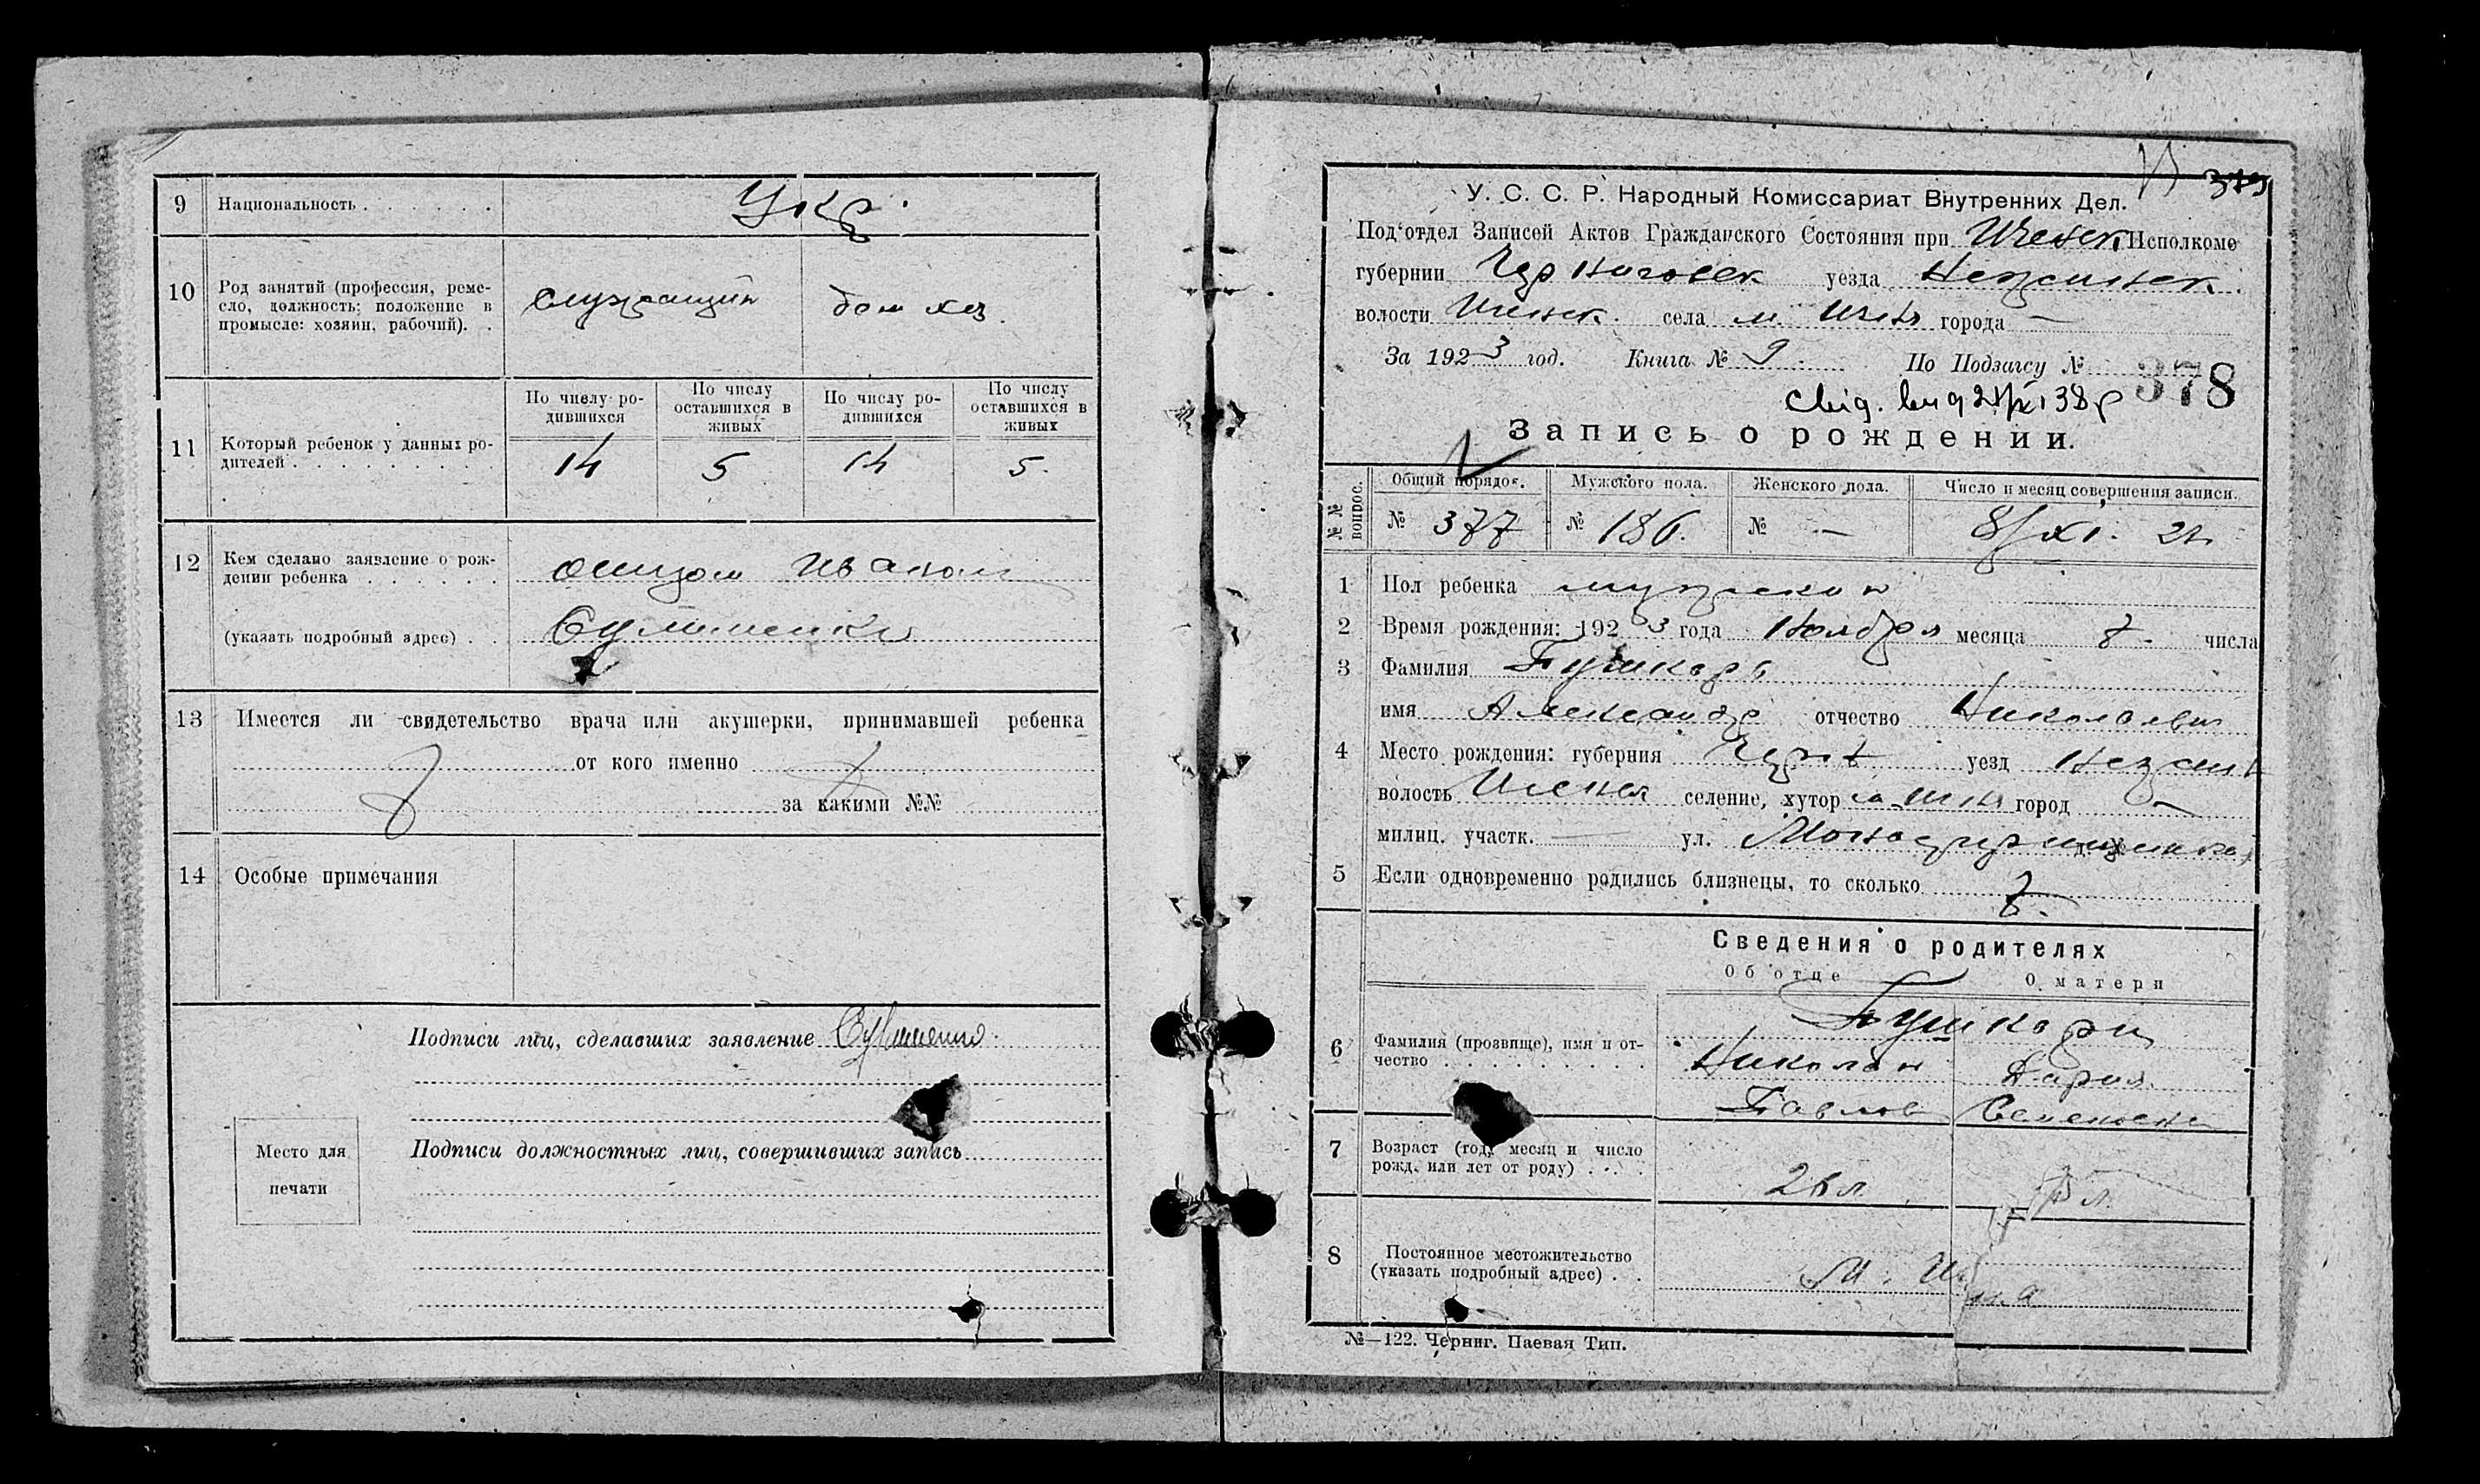 9 Национальность . . . . . . . Укр.
10 Род занятий (профессия, реме-
сло, должность: положение в
промысле: хозяин, рабочий). .
служащий дом хоз.
По числу ро-
дившихся
По числу
оставшихся в
живых
По числу ро-
дившихся
По числу
оставшихся в
живых
11 Который ребенок у данных ро-
дителей . . . . . . . . . .
14 5 14 5.
12 Кем сделано заявление о рож-
дении ребенка . . . . . . отцом Иваном
(указать подробный адрес) . .
13 Имеется ли свидетельство врача или акушерки, принимавшей ребенка
от кого именно
за какими №№
14 Особые примечания
Подписи лиц, сделавших заявление
Место для
печати
Подписи должностных лиц, совершивших запись
У. С. С. Р. Народный Комиссариат Внутренних Дел.
Под'отдел Записей Актов Гражданского Состояния при Иченск. Исполкоме
губернии Черниговск уезда Нежинск.
волости Иченск. села м. Ичня города —
За 1923 год. Книга № 9. По Подзагсу № 378
Запись о рождении.
№№ вопрос.
Общий порядок. Мужского пола. Женского пола. Число и месяц совершения записи.
№ 377 № 186. № — 8/XI.
1 Пол ребенка мужской
2 Время рождения: 1923 года Ноября месяца 7 - числа
3 Фамилия Пушкарь
имя Александр отчество Николаевич
4 Место рождения: губерния Черн уезд Нежин
волость Иченск селение, хутор м. Ичня город —
милиц. участк. — ул.
5 Если одновременно родились близнецы, то сколько
Сведения о родителях
Об отце О матери
6 Фамилия (прозвище), имя и от-
чество . . . . . . . . . .
Пушкари
Николай Дария
Павлов Семеновна
7 Возраст (год, месяц и число
рожд. или лет от роду) . . . .
26 л.
8 Постоянное местожительство
(указать подробный адрес) . .
М. Ичня
№—122. Черниг. Паевая Тип.